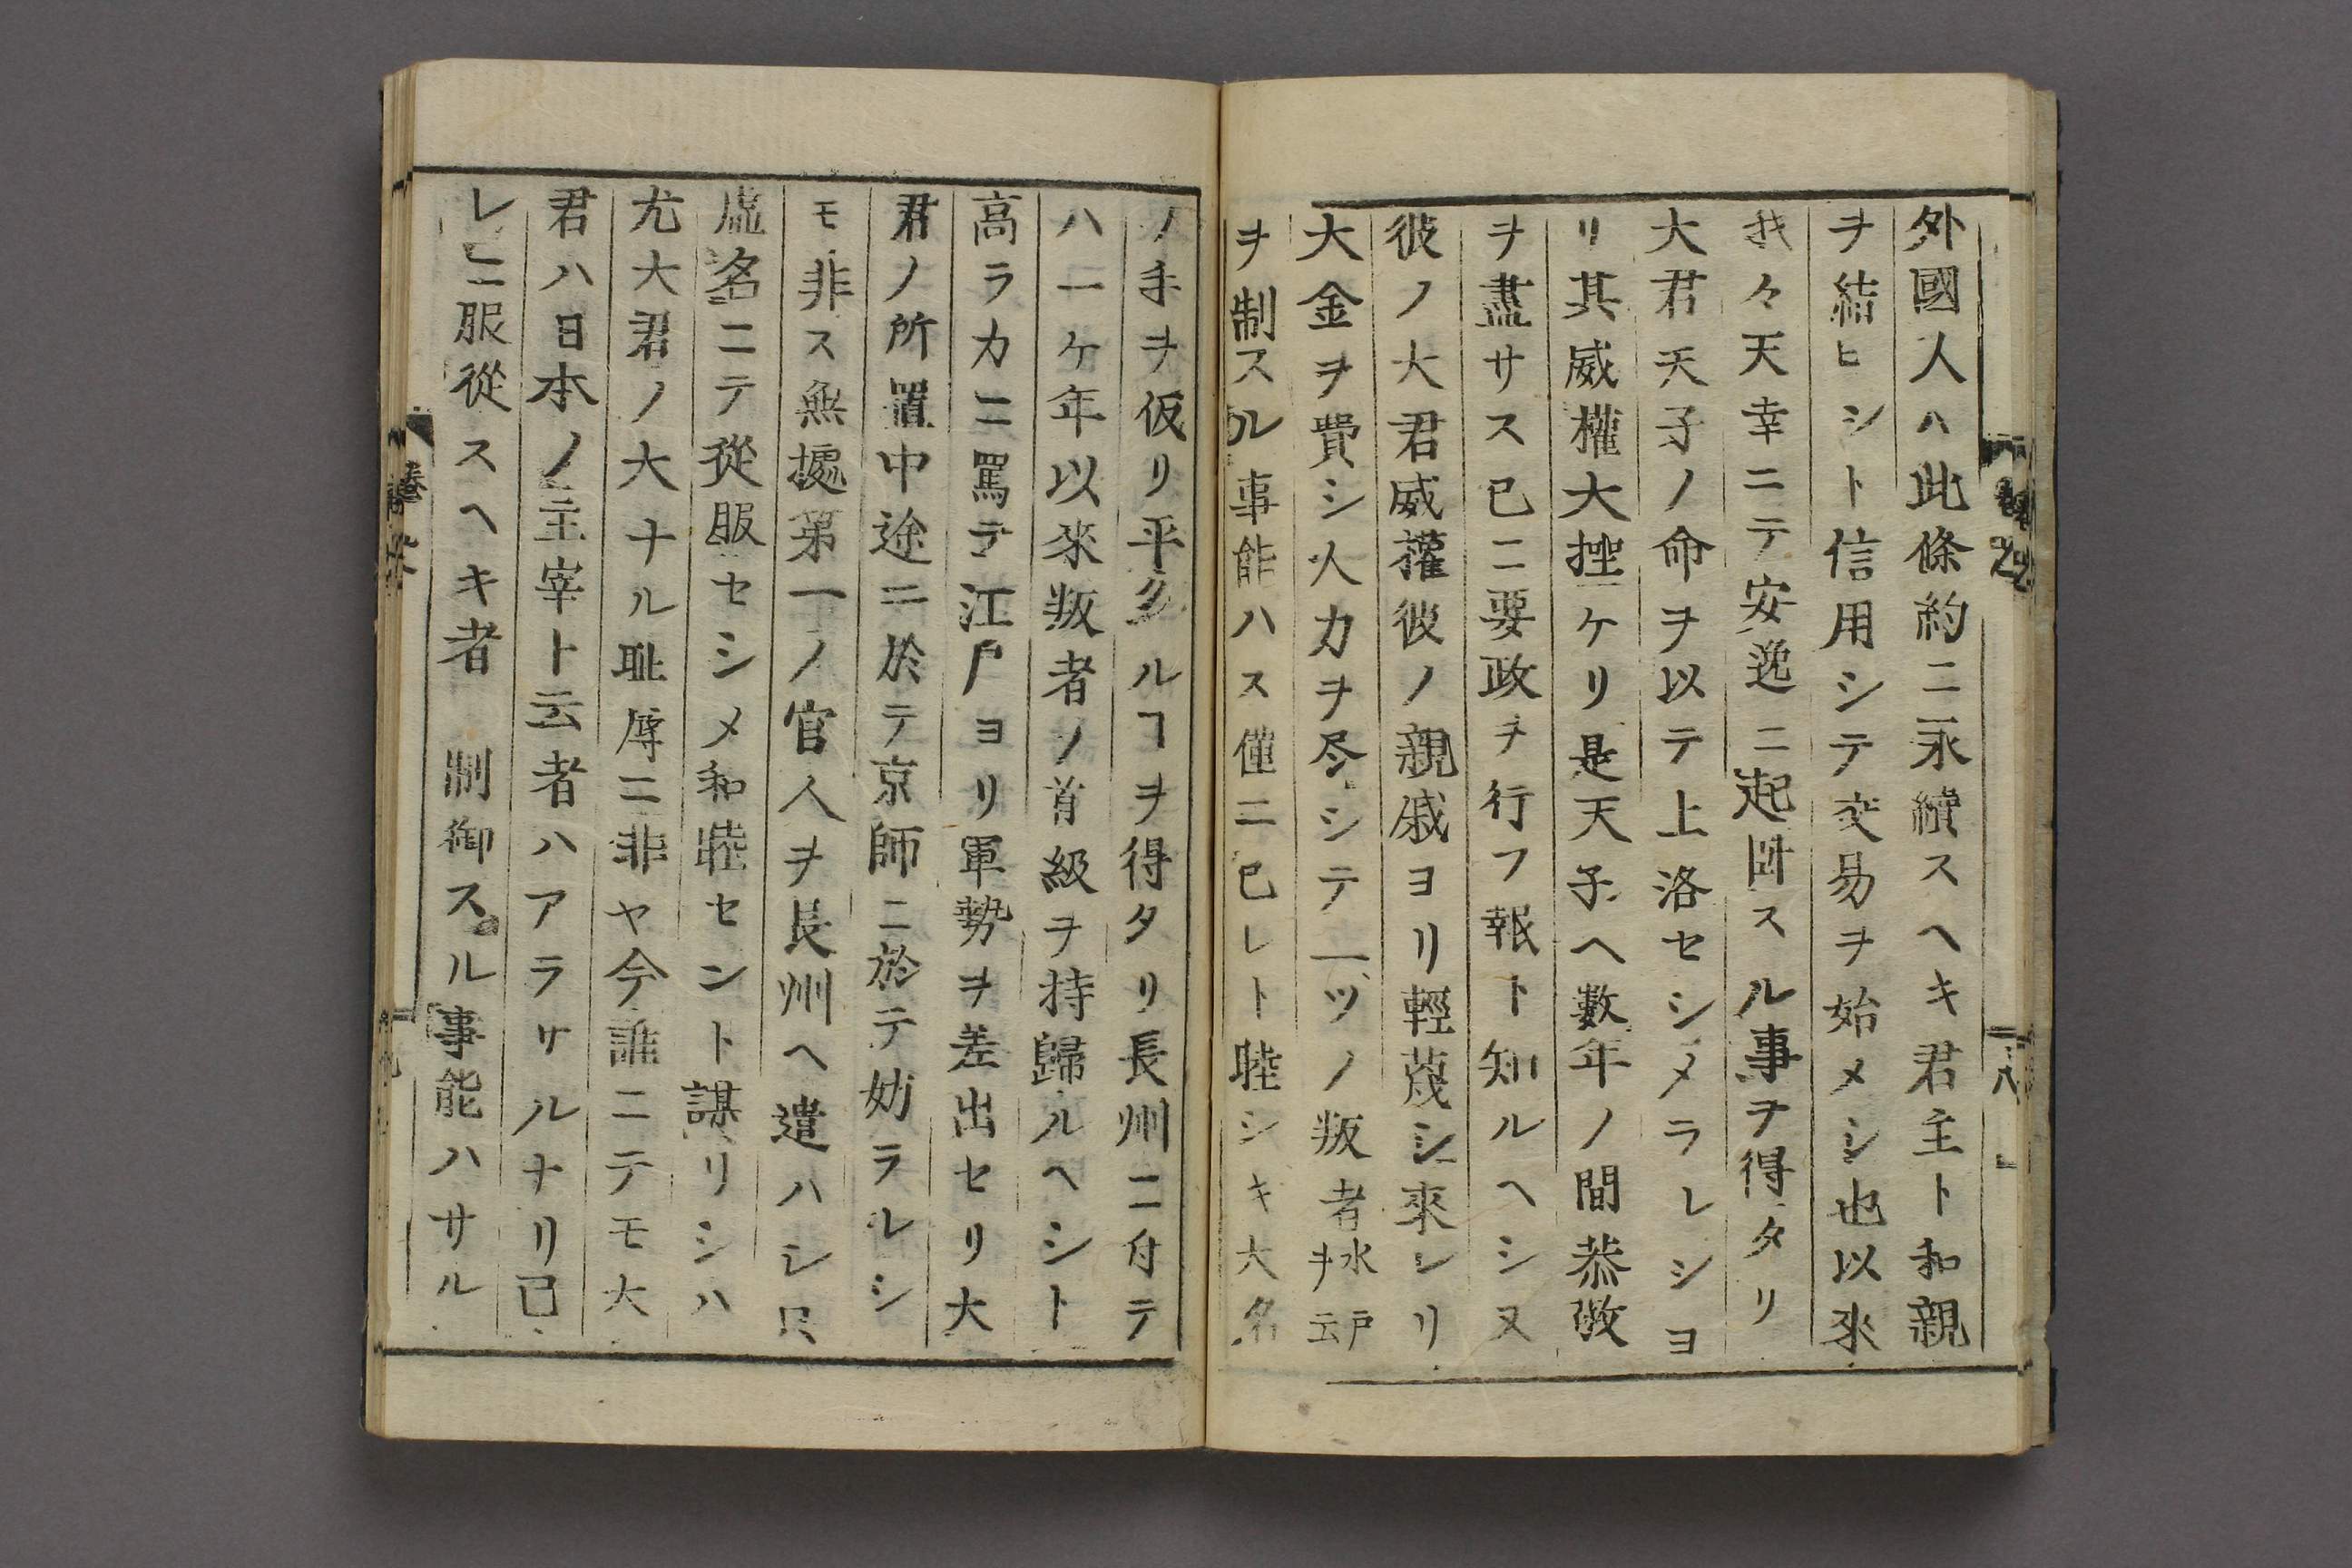 外國人ハ此條約ニ永續スヘキ君主ト和親
ヲ結ヒシト信用シテ交易ヲ始メシ也以來
我々天幸ニテ安逸ニ起臥スル事ヲ得タリ
大君天子ノ命ヲ以テ上洛セシメラレシヨ
リ其威權大挫ケリ是天子へ數年ノ間恭敬
ヲ盡サス已ニ要政ヲ行フ報ト知ルヘシ又
彼ノ大君威權彼ノ親戚ヨリ輕蔑シ來レリ
大金ヲ費シ人力ヲ尽シテ一ツノ叛者水戸ヲ云
ヲ制スル事能ハス僅ニ己レト睦シキ大名
ノ手ヲ仮リ平クルヿヲ得タリ長州ニ付テ
ハ一ケ年以來叛者ノ首級ヲ持歸ルヘシト
高ラカニ罵テ江戸ヨリ軍勢ヲ差出セリ大
君ノ所置中途ニ於テ京師ニ於テ妨ラレシ
モ非ス無據第一ノ官人ヲ長州ヘ遣ハシ只
虚名ニテ從服セシメ和睦セント謀リシハ
尤大君ノ大ナル耻辱ニ非ヤ今誰ニテモ大
君ハ日本ノ主宰ト云者ハアラサルナリ己
レニ服從スヘキ者 制御スル事能ハサル